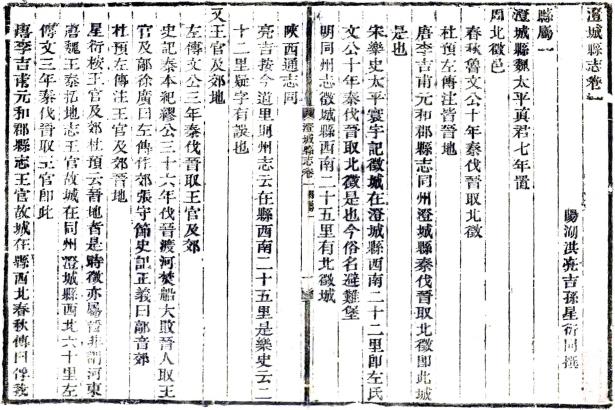 澄城縣志卷一
陽湖洪亮吉孫星衍同撰
縣屬一
澄城縣魏太平眞君七年置
周北徵邑
春秋魯文公十年秦伐晉取北徵
杜預左傳注皆晉地
唐李吉甫元和郡縣志同州澄城縣秦伐晉取北徵即此城
是也
宋樂史太平寰宇記徵城在澄城縣西南二十二里即左氏
文公十年秦伐晉取北徵是也今俗名避難堡
明同州志徵城縣西南二十五里有北徵城
澄城縣志卷一 縣屬一 一
陝西通志同
亮吉按今道里則州志云在縣西南二十五里是樂史云二
十二里疑字有誤也
又王官及郊地
左傳文公三年秦伐晉取王官及郊
史記秦本紀繆公三十六年伐晉渡河焚船大敗晉人取王
官及鄗徐廣曰左傳作郊張守節史記正義曰鄗音郊
杜預左傳注王官及郊晉地
星衍按王官及郊杜預云晉地者是時徵亦屬晉非謂河東
唐魏王泰括地志王官故城在同州澄城縣西北六十里左
傳文三年秦伐晉取王官即此
唐李吉甫元和郡縣志王官故城在縣西北春秋傳曰俘我